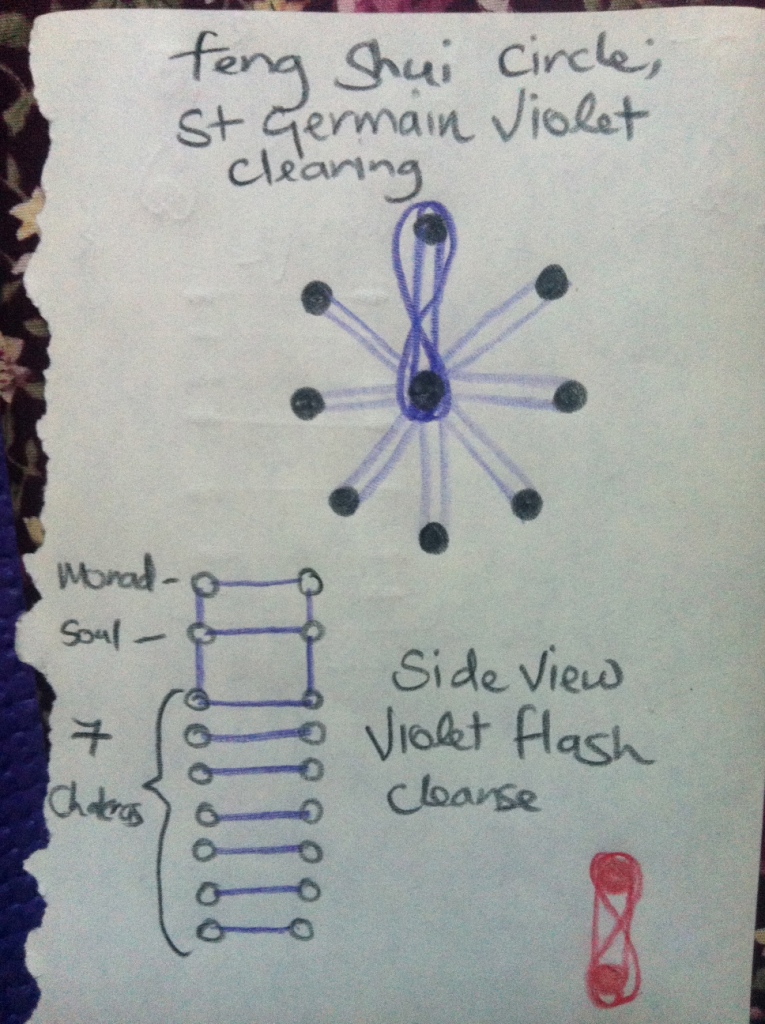 Feng Shui Circle;
St Germain Violet
clearing
Monad -
Soul -
7
Chakras
Side View
Violet flash
Cleanse